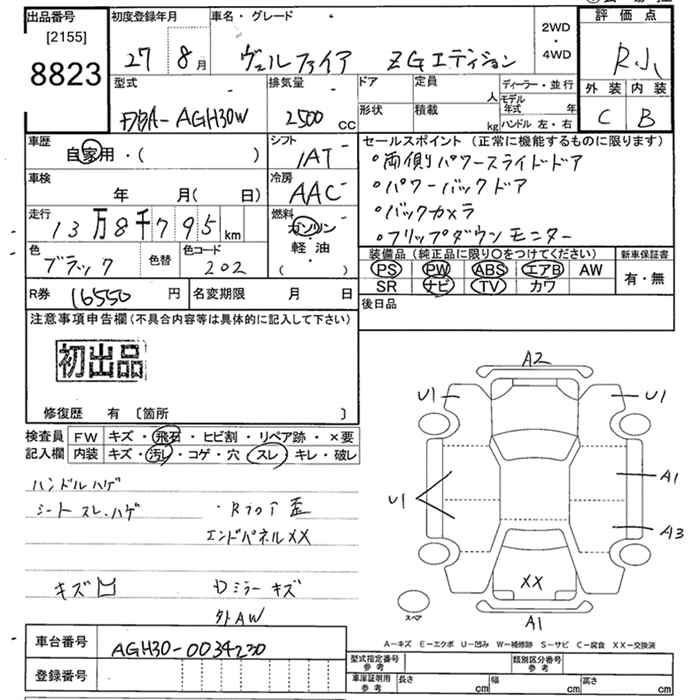 出品番号 初度登録年月 車名・グレード 評価点
[2155] 8823 27 8月 ヴェルファイア ZGエディション 2WD・4WD
外装 内装
C B
型式 DBA-AGH30W 排気量 2500cc ドア 定員 人 ディーラー・並行
形状 積載 kg モデル年式 年 ハンドル 左・右
車歴 自家用・( ) シフト IAT セールスポイント(正常に機能するものに限ります)
。両側パワースライドドア
車検 年 月( 日) 冷房 AAC 。パワーバックドア
走行 13万8千795km 燃料 ガソリン・軽油・( ) 。バックカメラ
。フリップダウンモニター
色 ブラック 色替 色コード 202 装備品(純正品に限り○をつけてください) 新車保証書
PS PW ABS エアB AW 有・無
SR ナビ TV カワ
R券 16550円 名変期限 月 日 後日品
注意事項申告欄(不具合内容等は具体的に記入して下さい)
初出品
修復歴 有 〔箇所 〕
検査員 FW キズ・飛石・ヒビ割・リペア跡・×要
記入欄 内装 キズ・汚レ・コゲ・穴・スレ・キレ・破レ
ハンドルハゲ
シートスレ、ハゲ
エンドパネルXX
キズ
ミラーキズ
外AW
A2
U1 U1
A1
U1
A3
XX
スペア A1
A−キズ E−エクボ U−凹み W−補修跡 S−サビ C−腐食 XX−交換済
車台番号 AGH30-0034230
登録番号
型式指定番号 参考 類別区分番号 参考
車庫証明用 参考 長さ cm 幅 cm 高さ cm